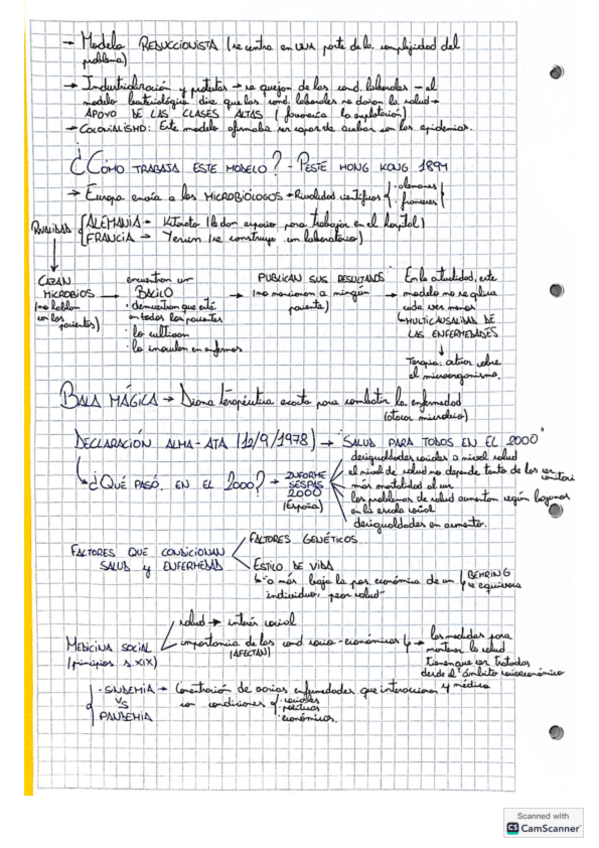 → Modelo REDUCCIONISTA (se centra en UNA parte de la complejidad del
problema)
→ Industrialización y protestas → se quejan de las cond. laborales → el
modelo bacteriológico dice que las cond. laborales no dañan la salud →
APOYO DE LAS CLASES ALTAS (favorecía la explotación)
→ COLONIALISMO: Este modelo afirmaba ser capaz de acabar con las epidemias.
¿CÓMO TRABAJA ESTE MODELO? - PESTE HONG KONG 1894
→ Europa envía a los MICROBIÓLOGOS → Rivalidad científicos { · alemanes
· franceses }
RIVALIDAD { ALEMANIA → Kitasato (le dan espacio para trabajar en el hospital)
FRANCIA → Yersin (se construye un laboratorio)
CAZAN
MICROBIOS
(no hablan
con los
pacientes)
→ encuentran un
BACILO
· demuestran que está
en todos los pacientes
· lo cultivan
· lo inoculan en enfermos
→ PUBLICAN SUS RESULTADOS
(no mencionan a ningún
paciente)
→ En la actualidad, este
modelo no se aplica
cada vez menos
↳ MULTICAUSALIDAD DE
LAS ENFERMEDADES
↓
Terapia: actúa sobre
el microorganismo.
BALA MÁGICA → Diana terapéutica exacta para combatir la enfermedad
(atacar microbio)
DECLARACIÓN ALMA-ATA (12/9/1978) → "SALUD PARA TODOS EN EL 2000"
↳ ¿QUÉ PASÓ EN EL 2000? → INFORME
SESPAS
2000
(España)
desigualdades sociales a nivel salud
el nivel de salud no depende tanto de los ser. sanitari
más mortalidad al sur
los problemas de salud aumentan según bajamos
en la escala social
desigualdades en aumento.
FACTORES QUE CONDICIONAN
SALUD y ENFERMEDAD
FACTORES GENÉTICOS
ESTILO DE VIDA
↳ "a más baja la pos. económica de un
individuo, peor salud"
BEHRING
se equivoca
MEDICINA SOCIAL
(principios s.XIX)
salud → interés social
importancia de las cond. socio-económicas
(AFECTAN)
→ las medidas para
mantener la salud
tienen que ser tratadas
desde el ámbito socioeconómico
y médico
· SINDEMIA → Concentración de varias enfermedades que interaccionan
VS con condiciones { · sociales
PANDEMIA · políticas
· económicas.
Scanned with
CS CamScanner